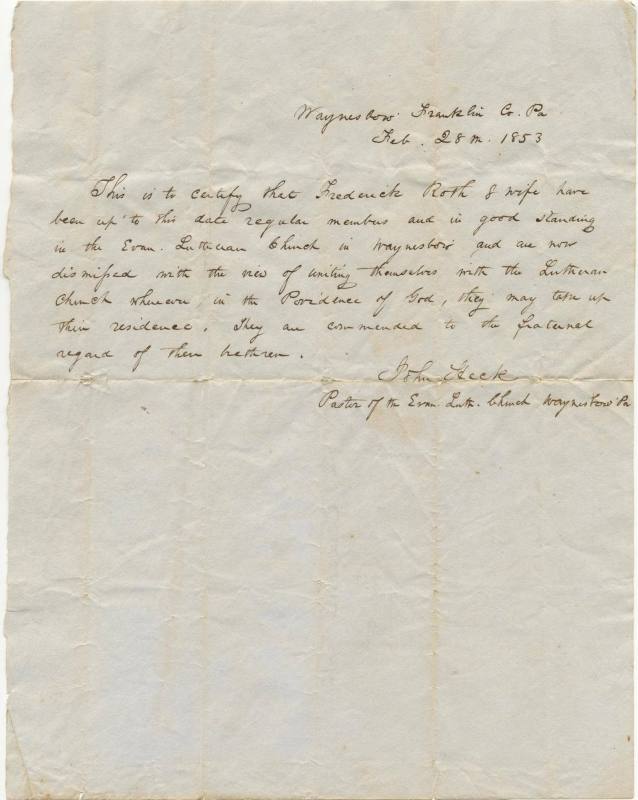 Waynesboro' Franklin Co. Pa
Feb. 28th. 1853
This is to certify that Frederick Roth & wife have
been up to this date regular members and in good standing
in the Evan. Lutheran Church in Waynesboro' and are now
dismissed with the view of uniting themselves with the Lutheran
Church wherever, in the Providence of God, they may take up
their residence. They are commended to the fraternal
regard of their brethren.
John Heck
Pastor of the Evan. Luth. Church Waynesboro' Pa